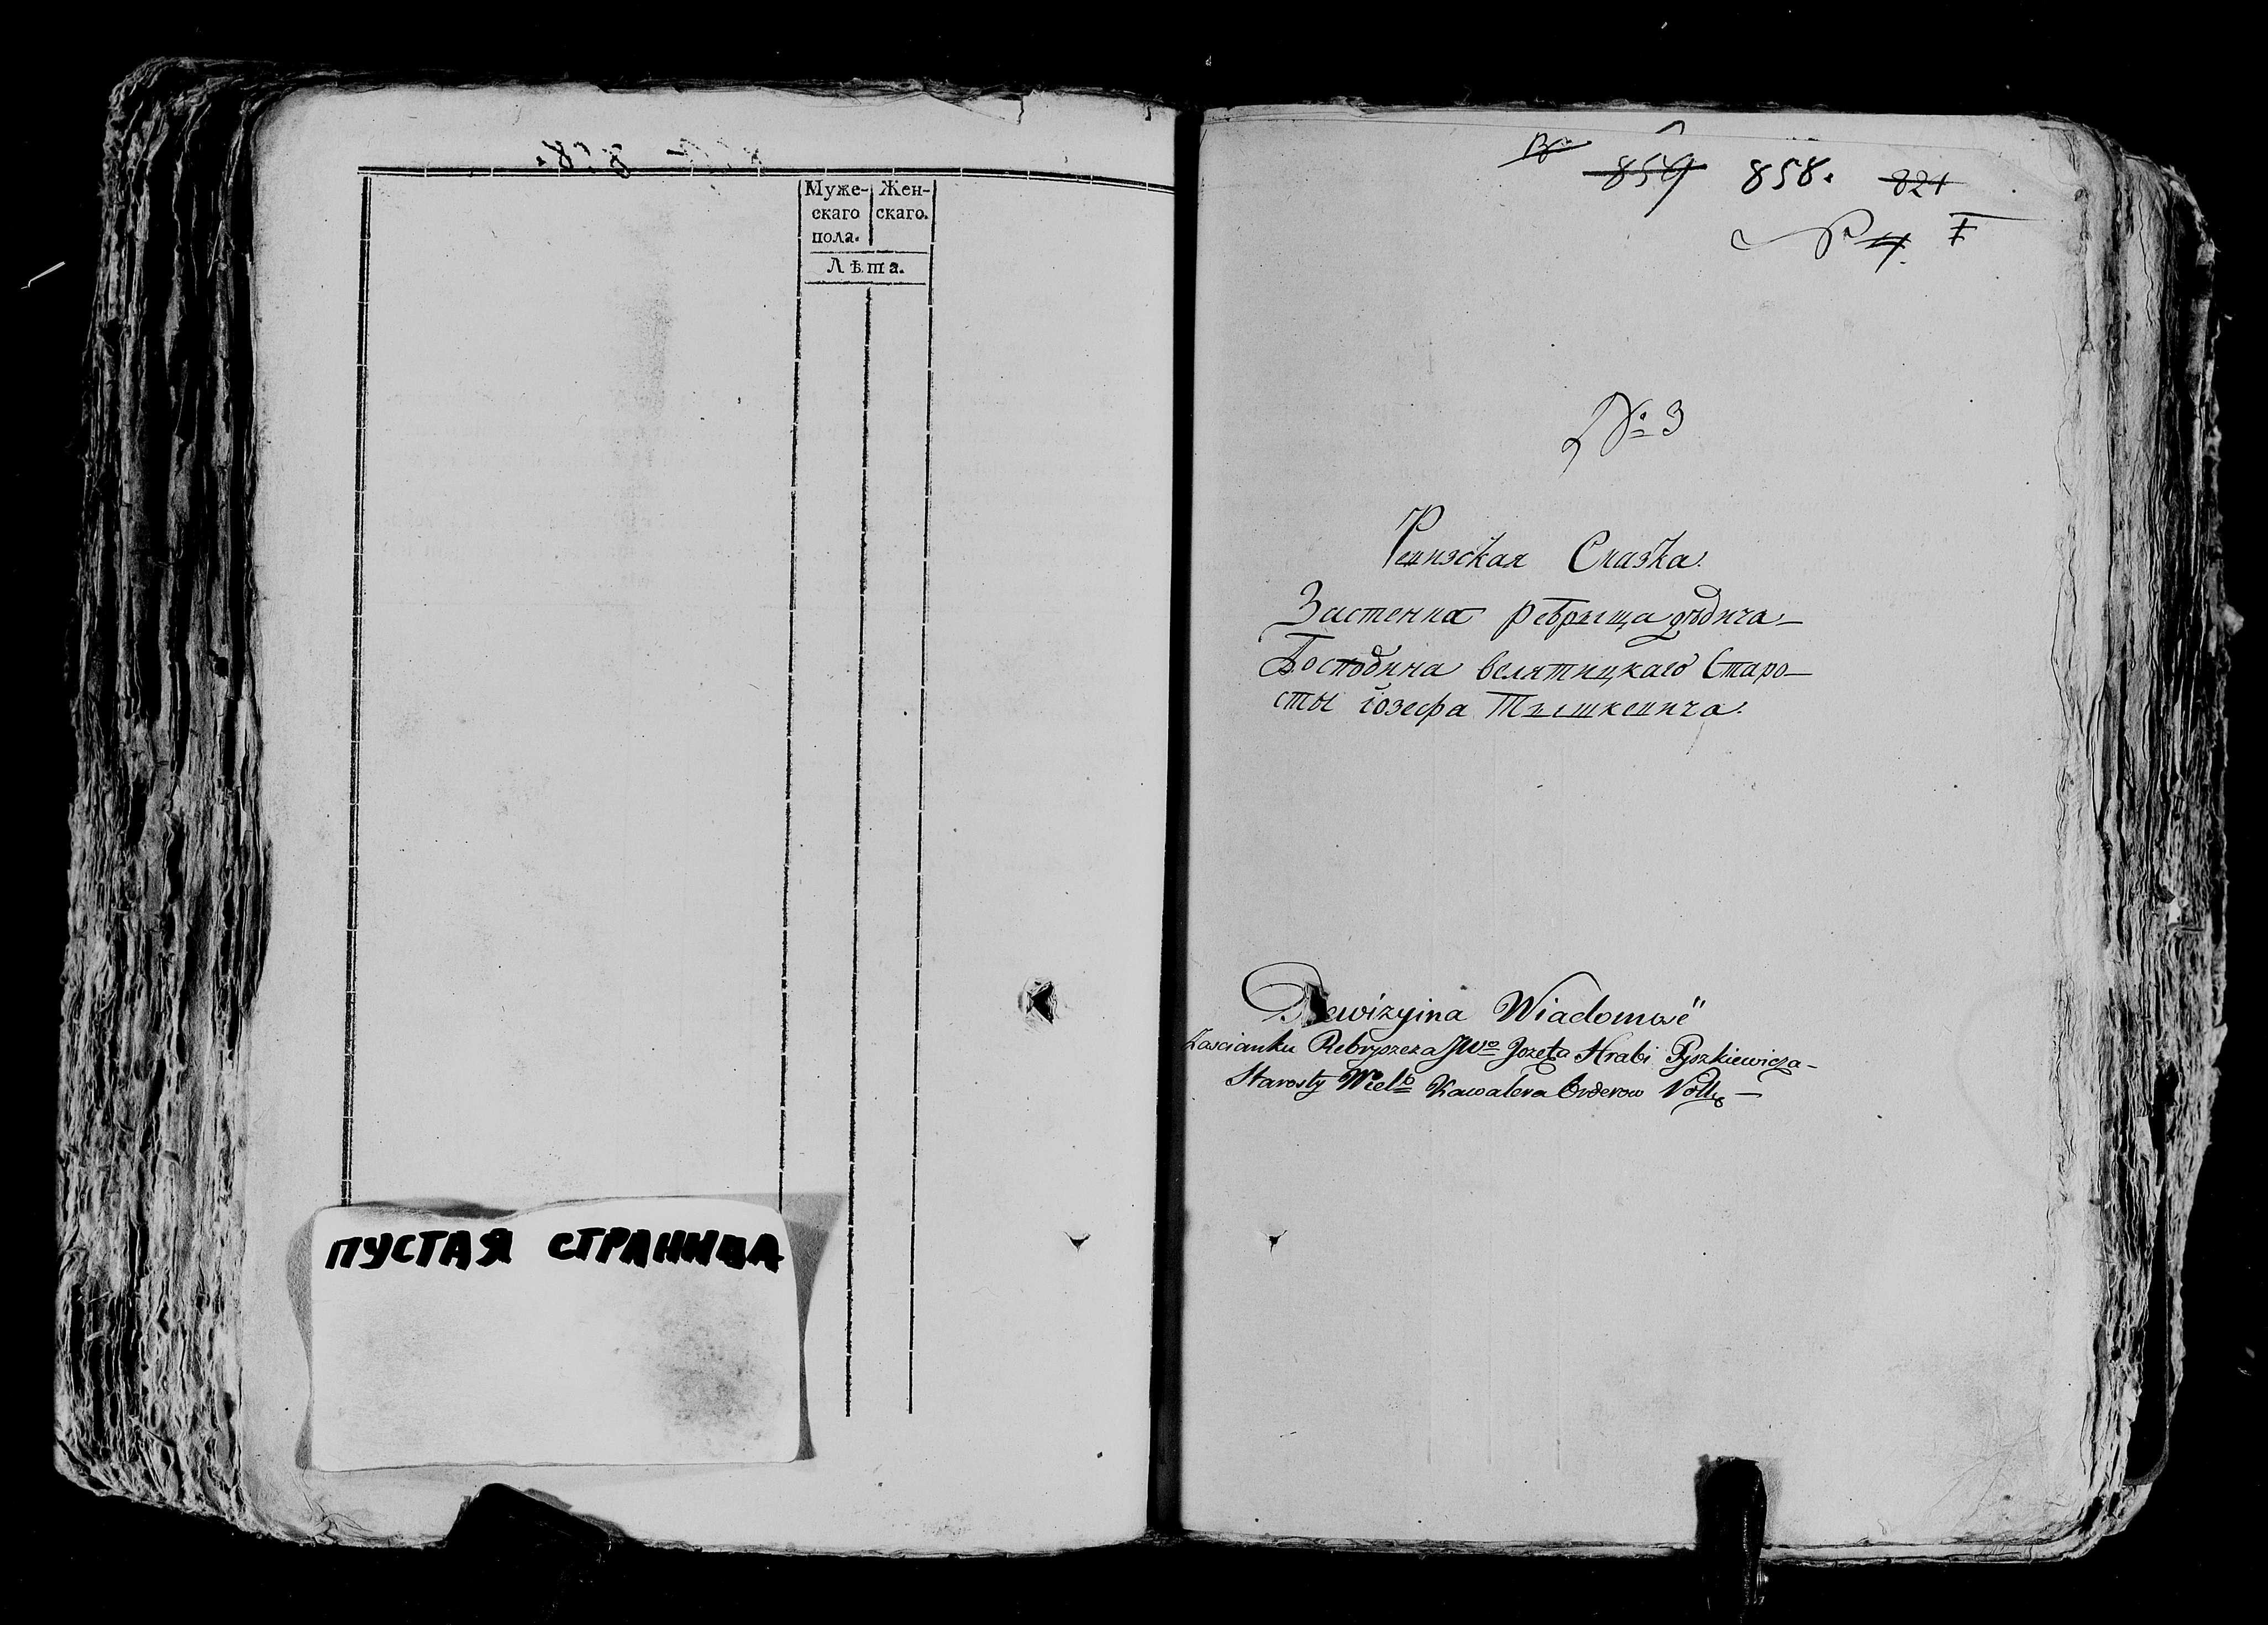 Муже- Жен-
скаго скаго.
пола.
Лѣта.
ПУСТАЯ СТРАНИЦА
854 858. 821
№ 3
Ревизская Сказка.
Застенка Ребрыща дѣдича
Господина велятицкаго Старо-
сты іозефа Тышкевича.
Rewizyina Wiadomość
Zascianku Rebryszcza JWo Jozefa Hrabi Tyszkiewicza
Starosty Wielo Kawalera Orderow